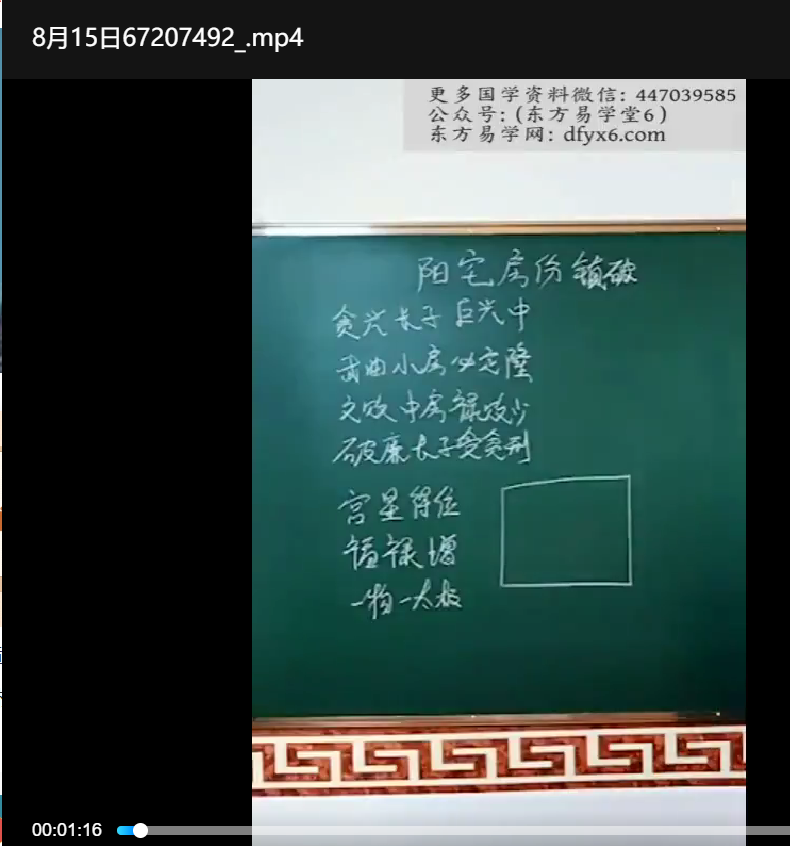 8月15日67207492_.mp4
更多国学资料微信：447039585
公众号：(东方易学堂6)
东方易学网：dfyx6.com
阳宅房份镇破
贪兴长子巨兴中
武曲小房必定隆
文败中房禄败少
破廉长子受
宫星得位
禄增
一物一太极
00:01:16